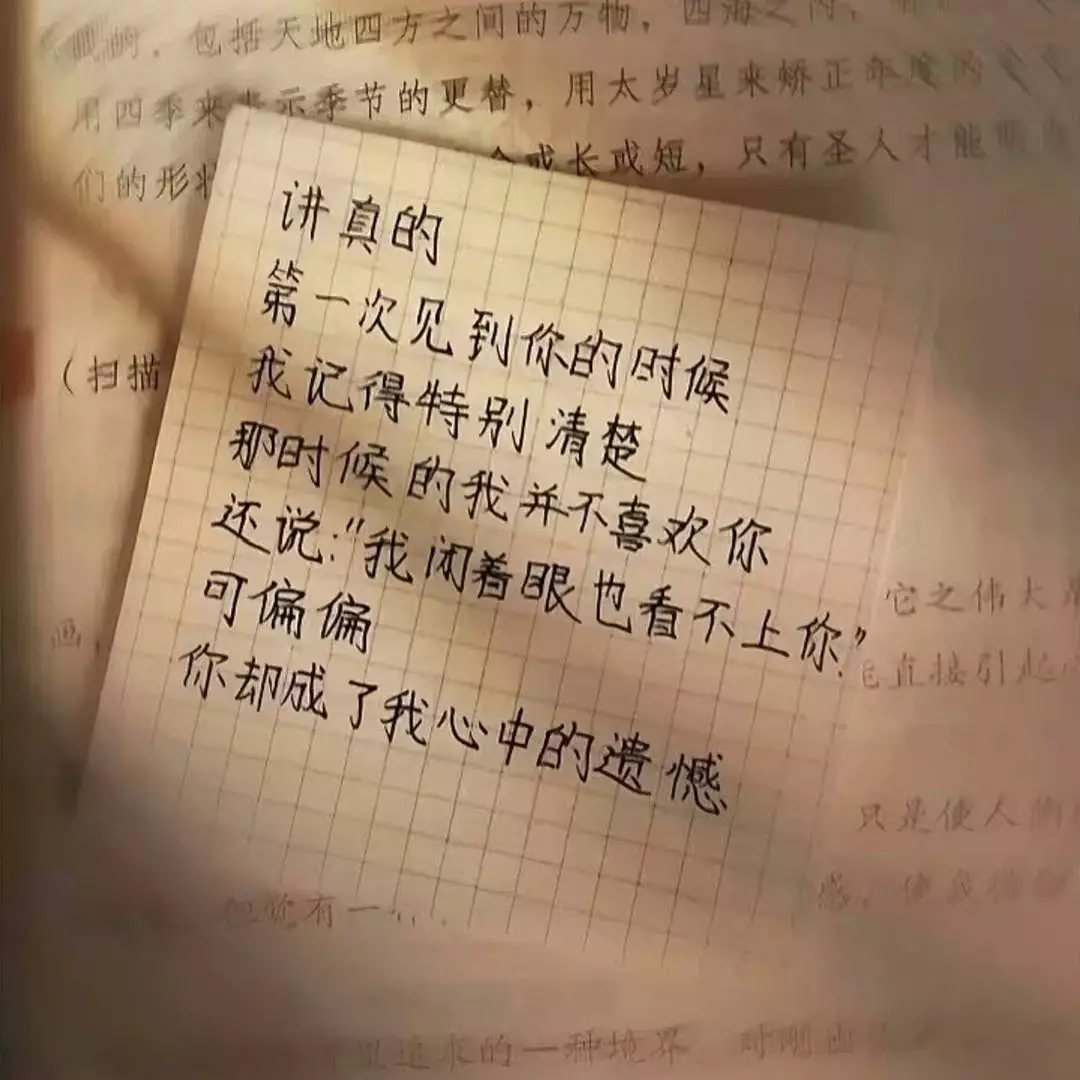 包括天地四方之间的万物，四海之内，
用四季来表示季节的更替，用太岁星来矫正年度的
们的形状
或长或短，只有圣人才能明
讲真的
第一次见到你的时候
（扫描
我记得特别清楚
那时候的我并不喜欢你
还说："我闭着眼也看不上你"
可偏偏
你却成了我心中的遗憾
它之伟大是
画，
直接引起
只是使人的
感，使我
有一
的一种境界